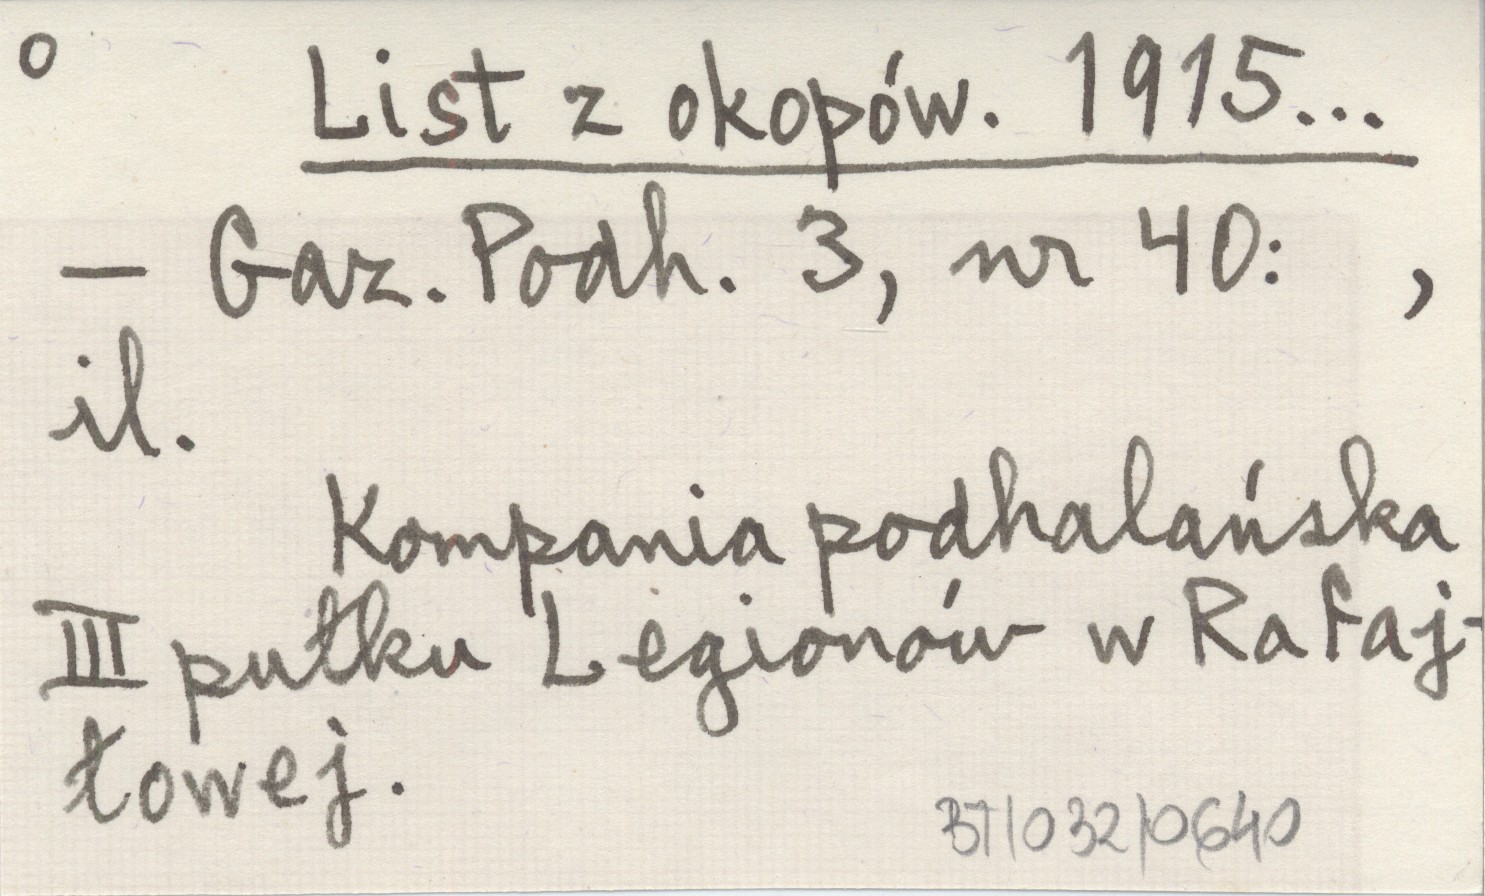 o List z okopów. 1915...
— Gaz. Podh. 3, nr 40: ,
il.
Kompania podhalańska
III pułku Legionów w Rafaj-
łowej.
BT/032/0640